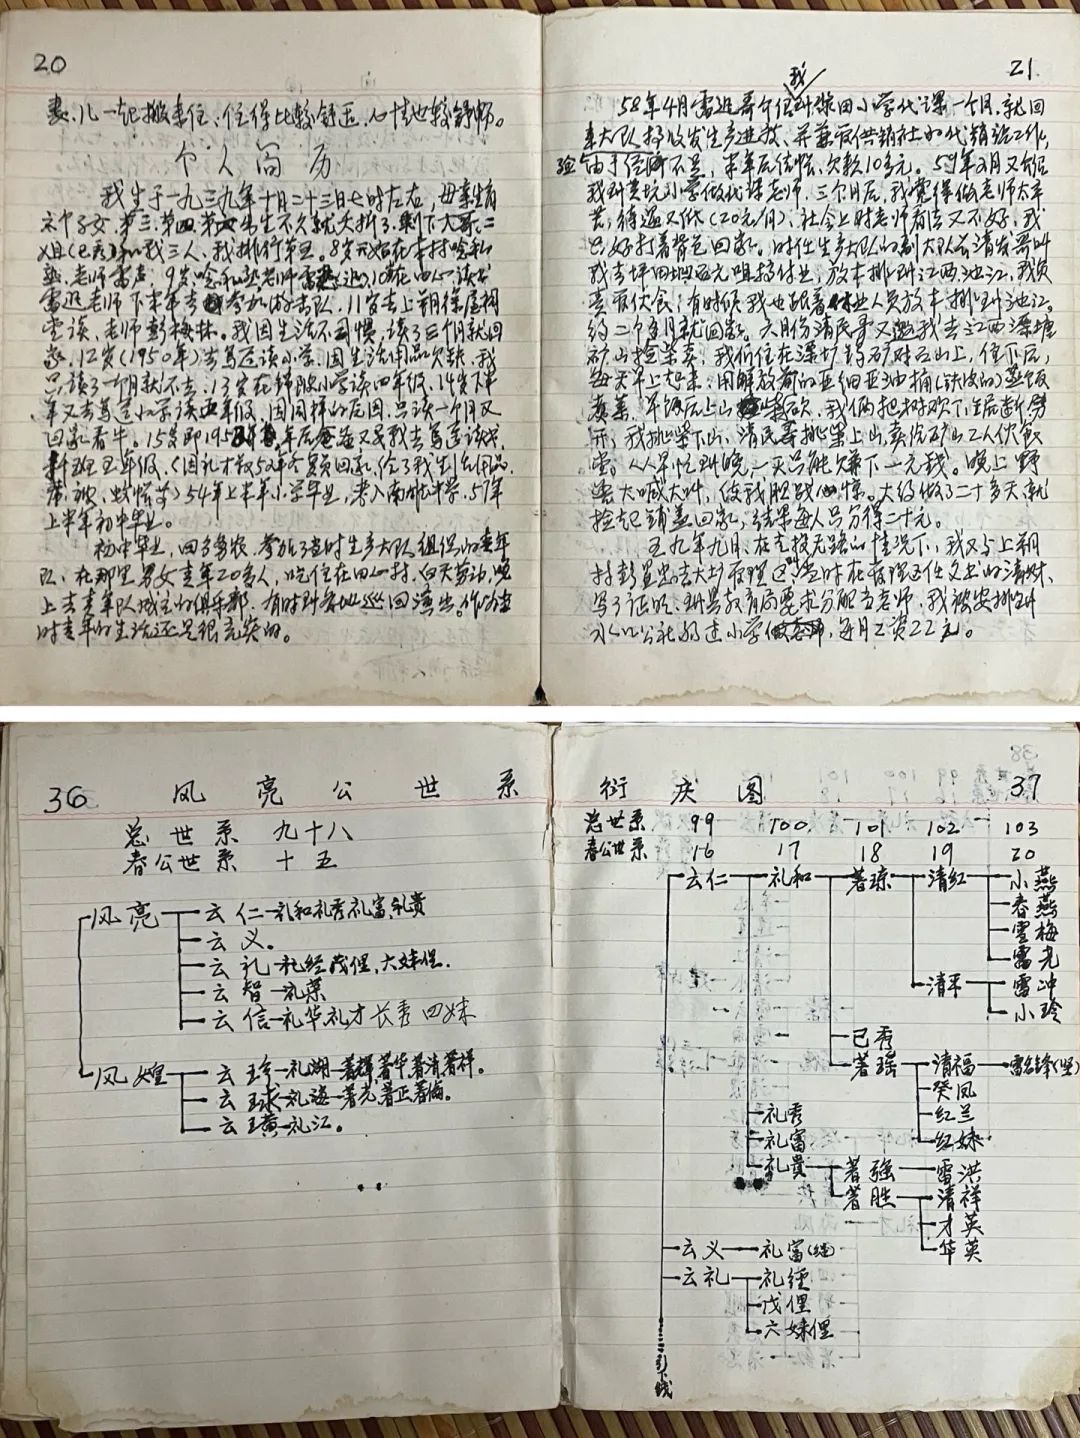 20
妻、儿一起搬来住、住得比较舒适、心情也较舒畅。
个人简历
我生于一九三九年十月二十三日七时左右，母亲生育
六个子女，第三、第四、第 出生不久就夭折了，剩下大哥、二
姐（已秀）和我三人，我排行第五。8岁开始在本村念私
塾，老师雷声，9岁念私塾老师 读书
雷巡老师下半年去 参加 ，11岁去上朔 屋祠
堂读、老师彭梅林。我因生活不习惯，读了三个月就回
家，12岁（1950年）去笃运读小学，因生活用品欠缺，我
只读了一个月就不去，13岁在 小学读四年级、14岁下半
年又去笃运小学读 年级，因同样的原因，只读一个月又
回家看牛。15岁即195 年，年后爸爸又叫我去笃运读书
插班五年级，（因礼才叔52年冬复员回家，给了我生活用品、
席、被、蚊帐等）54年上半年小学毕业，考入南雄中学，57年
上半年初中毕业。
初中毕业，回乡务农，参加了当时生产大队组织的青年
队，在那里男女青年20多人，吃住在田心村，白天劳动，晚
上去青年队成立的俱乐部，有时到各地巡回演出。
时青年的生活还是很充实的。
21
我
58年4月雷巡哥介绍到 田小学代课一个月，就回
来大队 收发生产进度、并兼 供销社的代销 工作，
由于经验不足，半年后结帐、欠款10多元。59年2月又 绍
我到 坑小学做代课老师，三个月后，我觉得做老师太辛
苦，待遇又低（20元/月），社会上对老师看法又不好，我
只好打着背包回家。时任生产大队的副大队长清发哥叫
我去坪田坳 元咀搞作业，放木排到江西池江，我负
责 伙食，有时候我也跟着作业人员放木排到池江。
约二个多月就回家。六月份清民哥又邀我去江西漂塘
矿山捡柴卖，我们住在漂塘钨矿对面山上，住下后，
每天早上起来，用解放前的亚细亚油桶（铁皮的）蒸饭
煮菜，早饭后上山 柴砍，我俩把树砍下 后断 劈
开，我挑柴下山，清民哥挑柴上山，卖给矿山工人伙食
堂。从早忙到晚，一天只能赚下一元钱。晚上野
兽大喊大叫，使我胆战心惊。大约做了二十多天就
捡起铺盖回家，结果每人只分得二十元。
五九年九月，在走投无路的情况下，我又与上朔
村彭 忠去大塘管理区 当时在管理区任文书的清 ，
写了证明，到县教育局要求分配当老师，我被安排到
水口公社弱过小学做老师，每月工资22元。
36 凤亮公世系
总世系 九十八
春公世系 十五
凤亮 云仁—礼和礼秀礼富礼贵
云义。
云礼—礼经茂俚，大妹俚.
云智—礼菜
云信—礼华礼才长秀四妹
凤煌 云珍—礼湖—著辉著华著清著祥。
云球—礼海—著光著正著备。
云璜—礼江。
衍庆图 37
总世系 99 100 101 102 103
春公世系 16 17 18 19 20
云仁 礼和 著琼 清红 小燕
春燕
雪梅
雷光
清平 雷冲
小玲
已秀
著瑶 清福 雷名锋（坚）
癸凤
红兰
红妹
礼秀
礼富
礼贵 著强 雷洪
著胜 清祥
才英
华英
云义 礼富（继）
云礼 礼经
茂俚
六妹俚
引下线